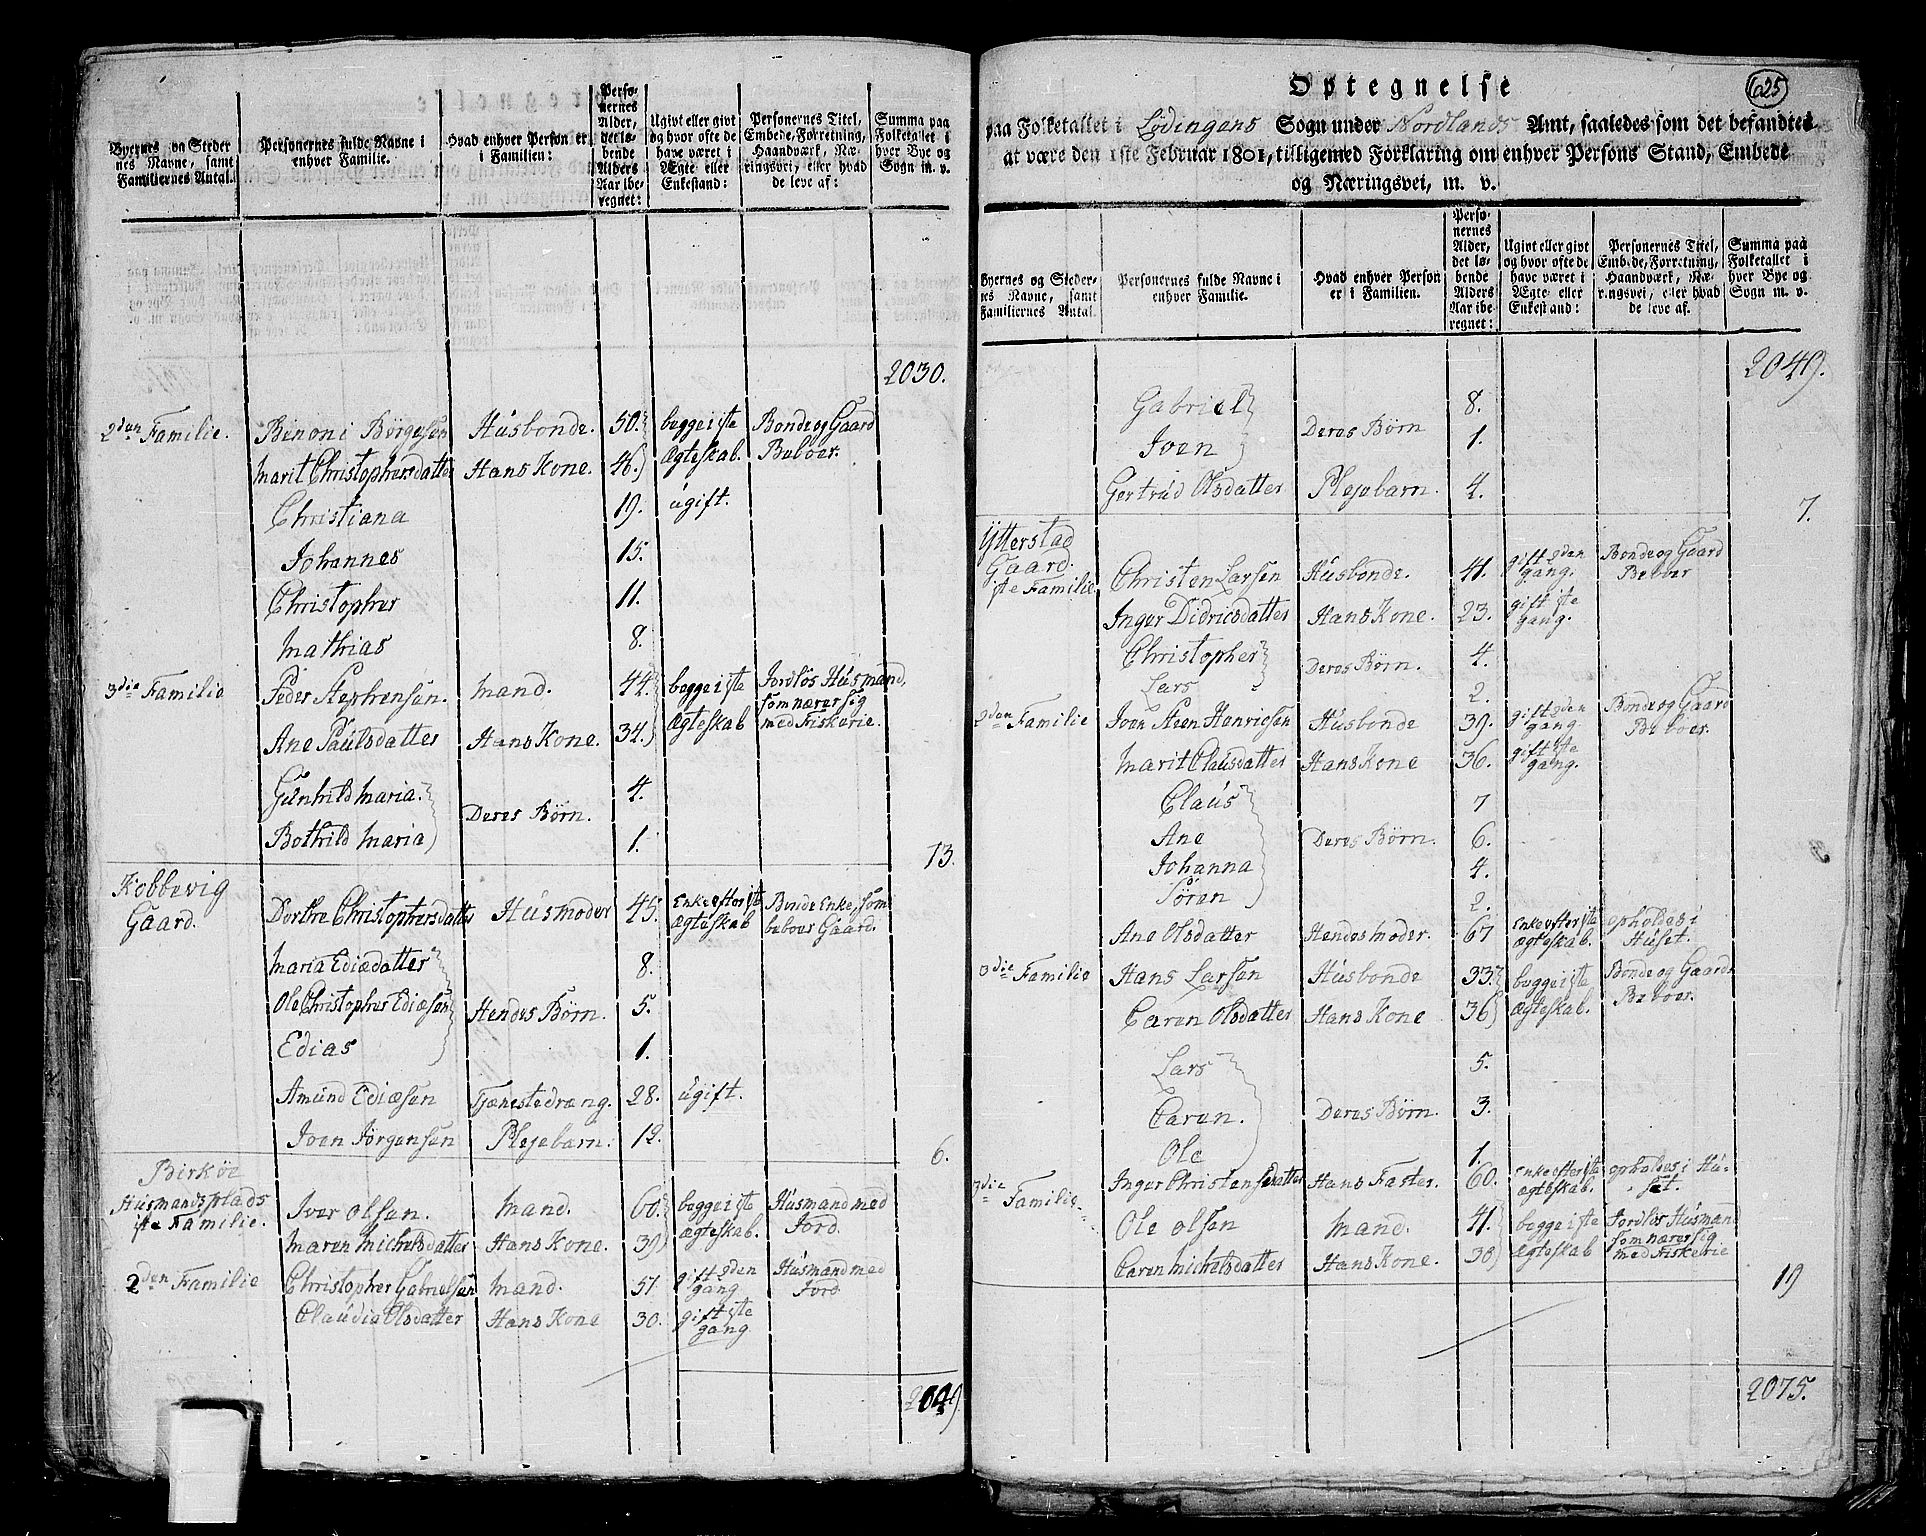 Byernes og Steder
nes Navne, samt
Familiernes Antal.
Personernes fulde Navne i
enhver Familie.
Hvad enhver Person er
i Familien:
Perso-
nernes
Alder,
det lø-
bende
Alders
Aar ibe-
regnet:
Ugivt eller givt
og hvor ofte de
have været i
Ægte eller
Enkestand:
Personernes Titel,
Embede, Forretning,
Haandværk, Næ-
ringsvei, eller hvad
de leve af:
Summa paa
Folketallet i
hver Bye og
Sogn m. v.
2030.
2den Familie. Benoni Børgesen Husbonde. 50. begge i 1ste Bonde og Gaard
Marit Christophersdatter Hans Kone. 46. Ægteskab. Beboer.
Christiana 19. ugift.
Johannes 15.
Christopher 11.
Mathias 8.
3die Familie Peder Stephensen. Mand. 44. begge i 1ste Jordløs Husmand
Ane Paulsdatter Hans Kone. 34. Ægteskab som nærer sig
med Fiskerie.
Gunhild Maria. 4.
Deres Børn.
Bothild Maria 1.
13.
Kobbevig
Gaard. Dorthe Christophersdatter Husmoder 45. Enke efter 1ste Bonde Enke, som
Ægteskab beboer Gaard.
Maria Ediædatter 8.
Ole Christopher Ediæsen Hendes Børn. 5.
Edias 1.
Amund Ediæsen Tjenestedræng. 28. ugift.
Joen Jørgensen Plejebarn. 12.
6.
Birkøe
Husmandsplads
1ste Familie. Iver Olsen. Mand. 60. begge i 1ste Husmand med
Maren Michelsdatter Hans Kone. 39 Ægteskab. Jord.
2den Familie Christopher Gabrielsen Mand. 51 gift 2den Husmand med
gang Jord
Claudia Olsdatter Hans Kone 30. gift 1ste
gang
2049.
625
Optegnelse
paa Folketallet i Lødingens Sogn under Nordlands Amt, saaledes som det befandtes
at være den 1ste Februar 1801, tilligemed Forklaring om enhver Persons Stand, Embede
og Næringsvei, m. v.
Byernes og Steder-
nes Navne, samt
Familiernes Antal.
Personernes fulde Navne i
enhver Familie.
Hvad enhver Person
er i Familien.
Perso-
nernes
Alder,
det lø-
bende
Alders
Aar ibe-
regnet:
Ugivt eller givt
og hvor ofte de
have været i
Ægte- eller
Enkestand:
Personernes Titel,
Embede, Forretning,
Haandværk, Næ-
ringsvei, eller hvad
de leve af.
Summa paa
Folketallet i
hver Bye og
Sogn m. v.
2049.
Gabriel 8.
Deres Børn
Joen 1.
Gertrud Olsdatter Plejebarn. 4.
7.
Ytterstad
Gaard.
1ste Familie. Christen Larsen Husbonde. 41. gift 2den Bonde og Gaard
gang. Beboer
Inger Didricsdatter Hans Kone. 23. gift 1ste
gang.
Christopher 4.
Deres Børn.
Lars 2.
2den Familie Joen Steen Henricsen Husbonde 39. gift 2den Bonde og Gaard
gang Beboer.
Marit Clausdatter Hans Kone 36. gift 1ste
gang.
Claus 7
Ane Deres Børn. 6.
Johanna 4.
Søren 2.
Ane Olsdatter Hendes Moder. 67 Enke efter 1ste opholdes i
Ægteskab. Huset.
3die Familie Hans Larsen Husbonde 33. begge i 1ste Bonde og Gaard
Caren Olsdatter Hans Kone 36 Ægteskab. Beboer.
Lars 5.
Caren. Deres Børn. 3.
Ole 1.
Inger Christensdatter Hans Faster. 60. Enke efter 1ste opholdes i Hu-
Ægteskab. set.
3die
Familie. Ole Olsen Mand. 41. begge i 1ste Jordløs Husmand
Caren Michelsdatter Hans Kone. 38 Ægteskab som nærer sig
med Fiskerie
19
2075.